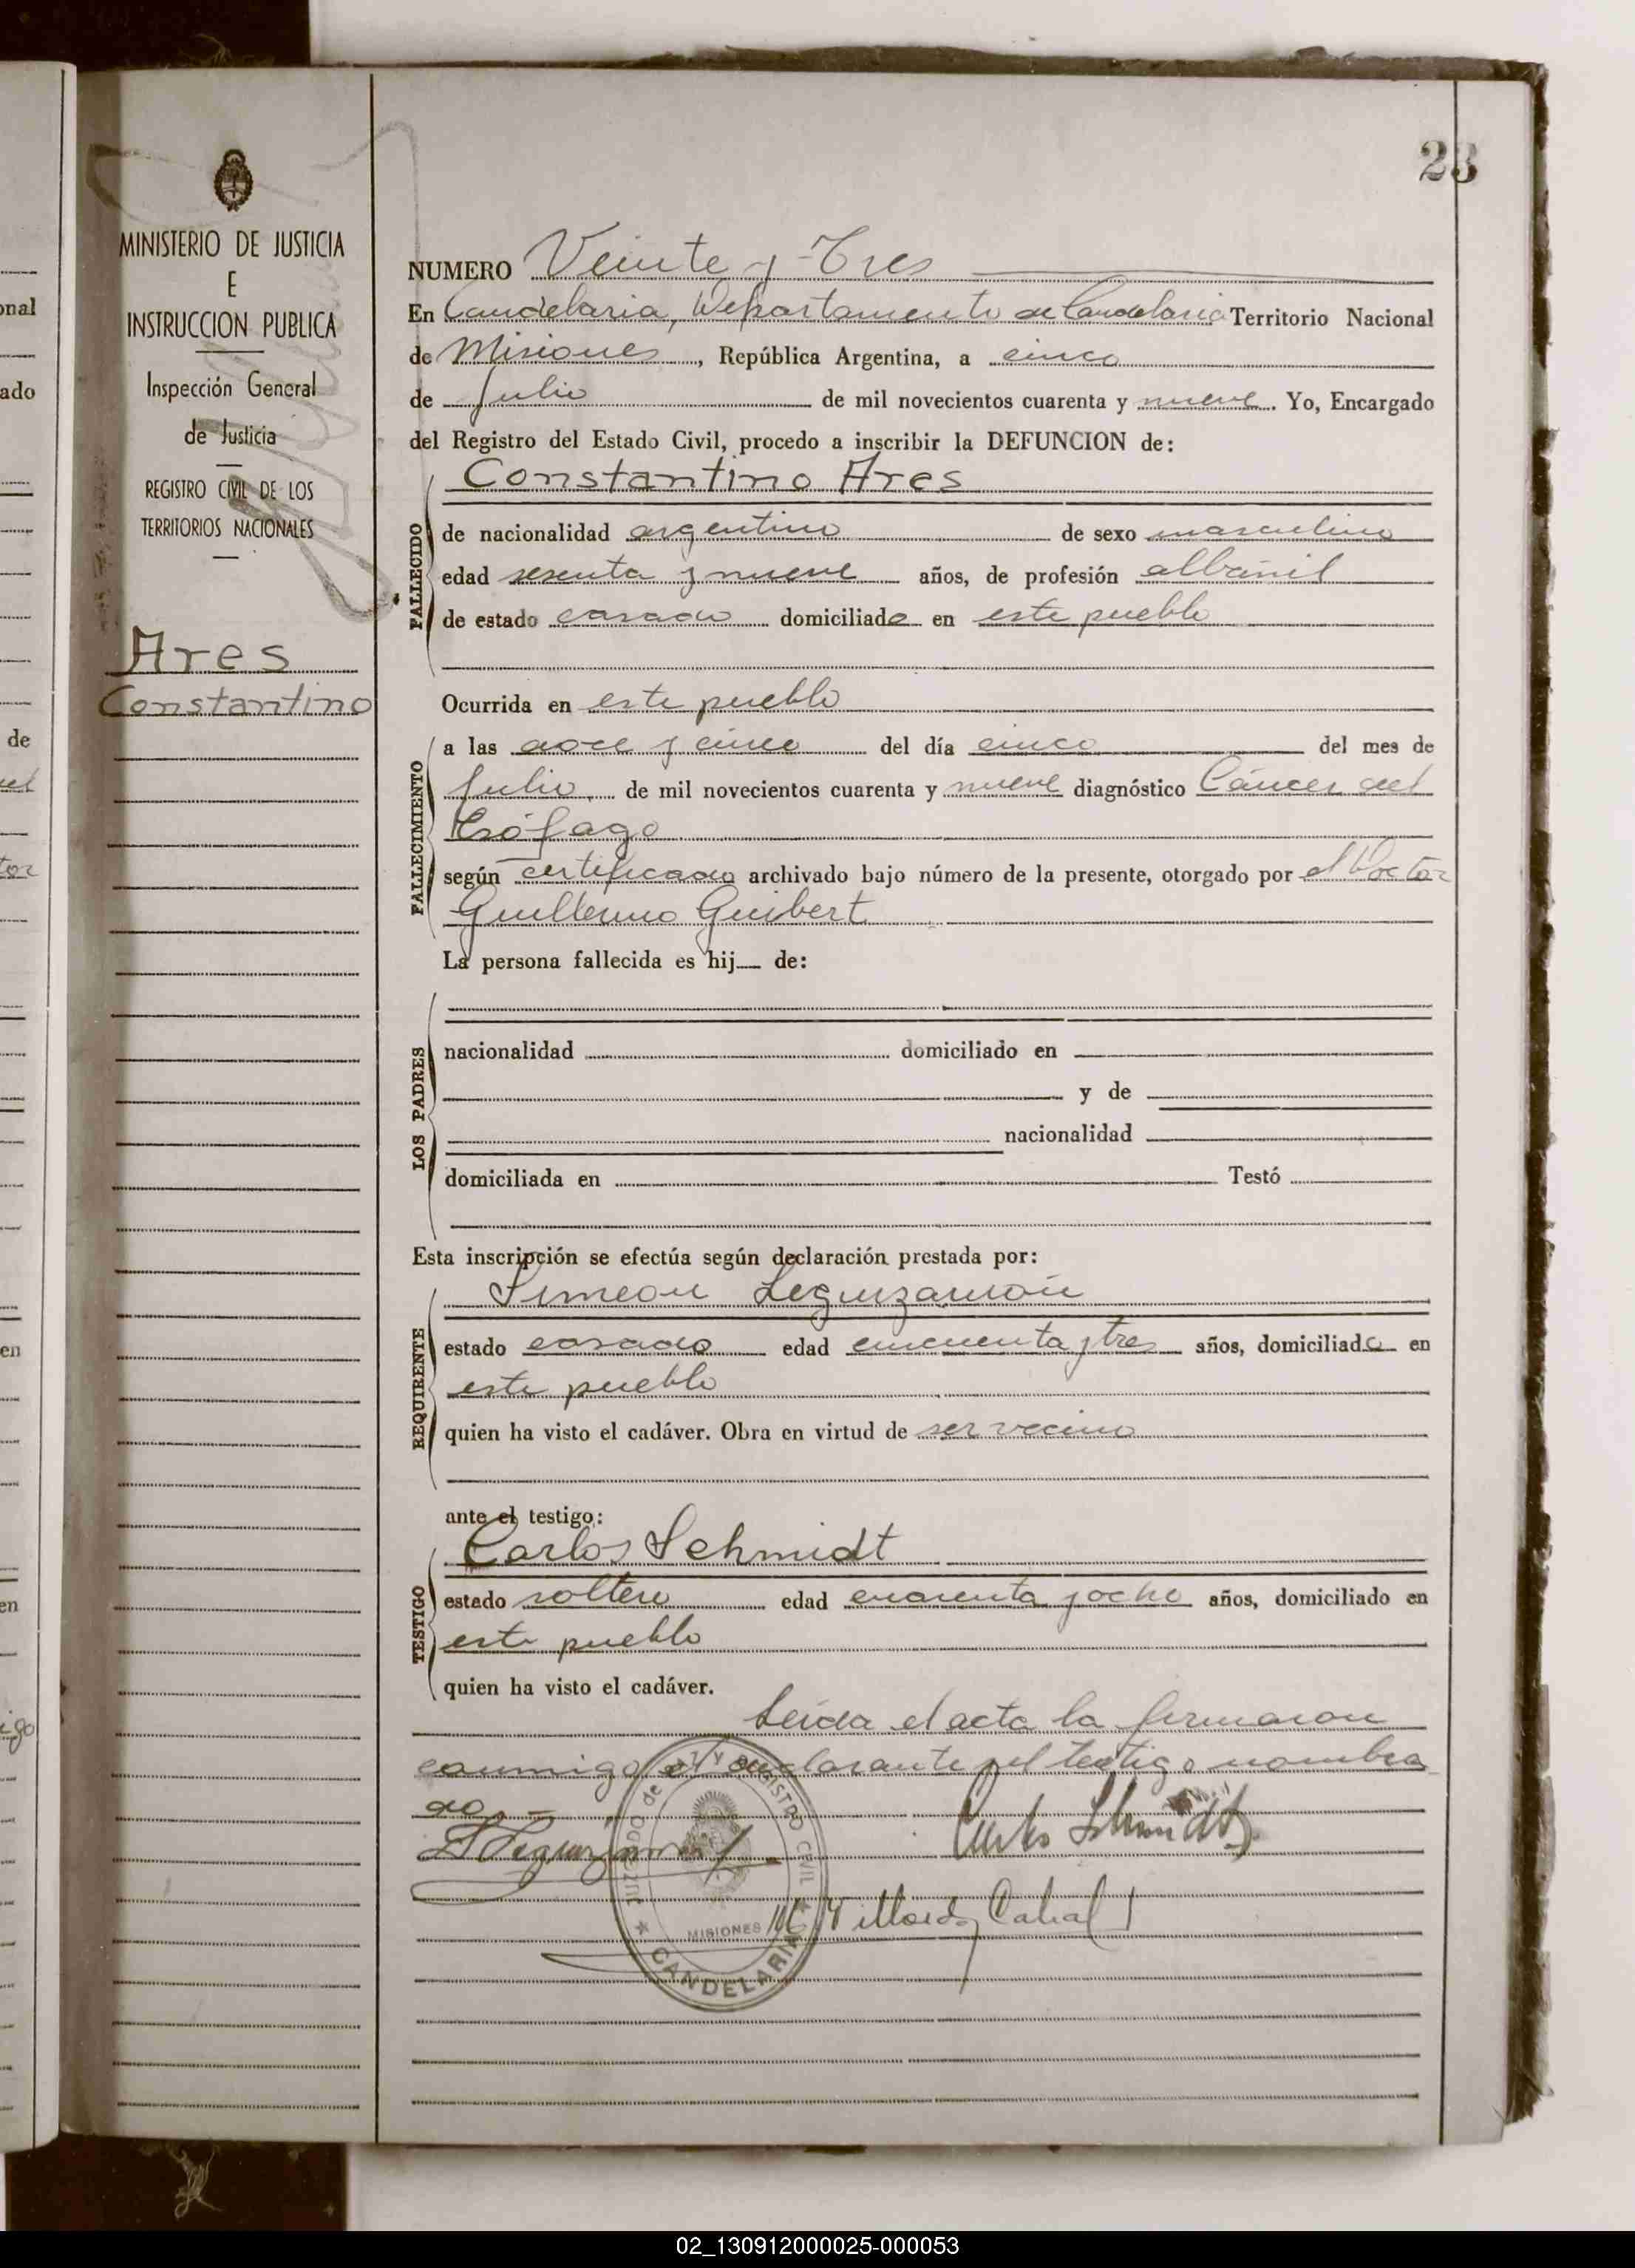 23
MINISTERIO DE JUSTICIA
E
INSTRUCCION PUBLICA
Inspección General
de Justicia
REGISTRO CIVIL DE LOS
TERRITORIOS NACIONALES
Ares
Constantino
NUMERO Veinte y Tres
En Candelaria, Departamento de Candelaria Territorio Nacional
de Misiones, República Argentina, a cinco
de Julio de mil novecientos cuarenta y nueve. Yo, Encargado
del Registro del Estado Civil, procedo a inscribir la DEFUNCION de:
Constantino Ares
FALLECIDO
de nacionalidad argentino de sexo masculino
edad sesenta y nueve años, de profesión albañil
de estado casado domiciliado en este pueblo
Ocurrida en este pueblo
FALLECIMIENTO
a las doce y cinco del día cinco del mes de
Julio, de mil novecientos cuarenta y nueve diagnóstico Cáncer del
Esófago
según certificado archivado bajo número de la presente, otorgado por el Doctor
Guillermo Guibert
La persona fallecida es hij de:
LOS PADRES
nacionalidad domiciliado en
y de
nacionalidad
domiciliada en Testó
Esta inscripción se efectúa según declaración prestada por:
Simeon Leguizamón
REQUIRENTE
estado casado edad cincuenta y tres años, domiciliado en
este pueblo
quien ha visto el cadáver. Obra en virtud de ser vecino
ante el testigo:
Carlos Schmidt
TESTIGO
estado soltero edad cuarenta y ocho años, domiciliado en
este pueblo
quien ha visto el cadáver.
Leída el acta la firmaron
conmigo el declarante y el testigo nombra
do.-
S Leguizamón Carlos Schmidt
Cabral
JUZGADO de PAZ Y REGISTRO CIVIL
MISIONES
CANDELARIA
onal
ado
de
tor
en
en
igo
02_130912000025-000053